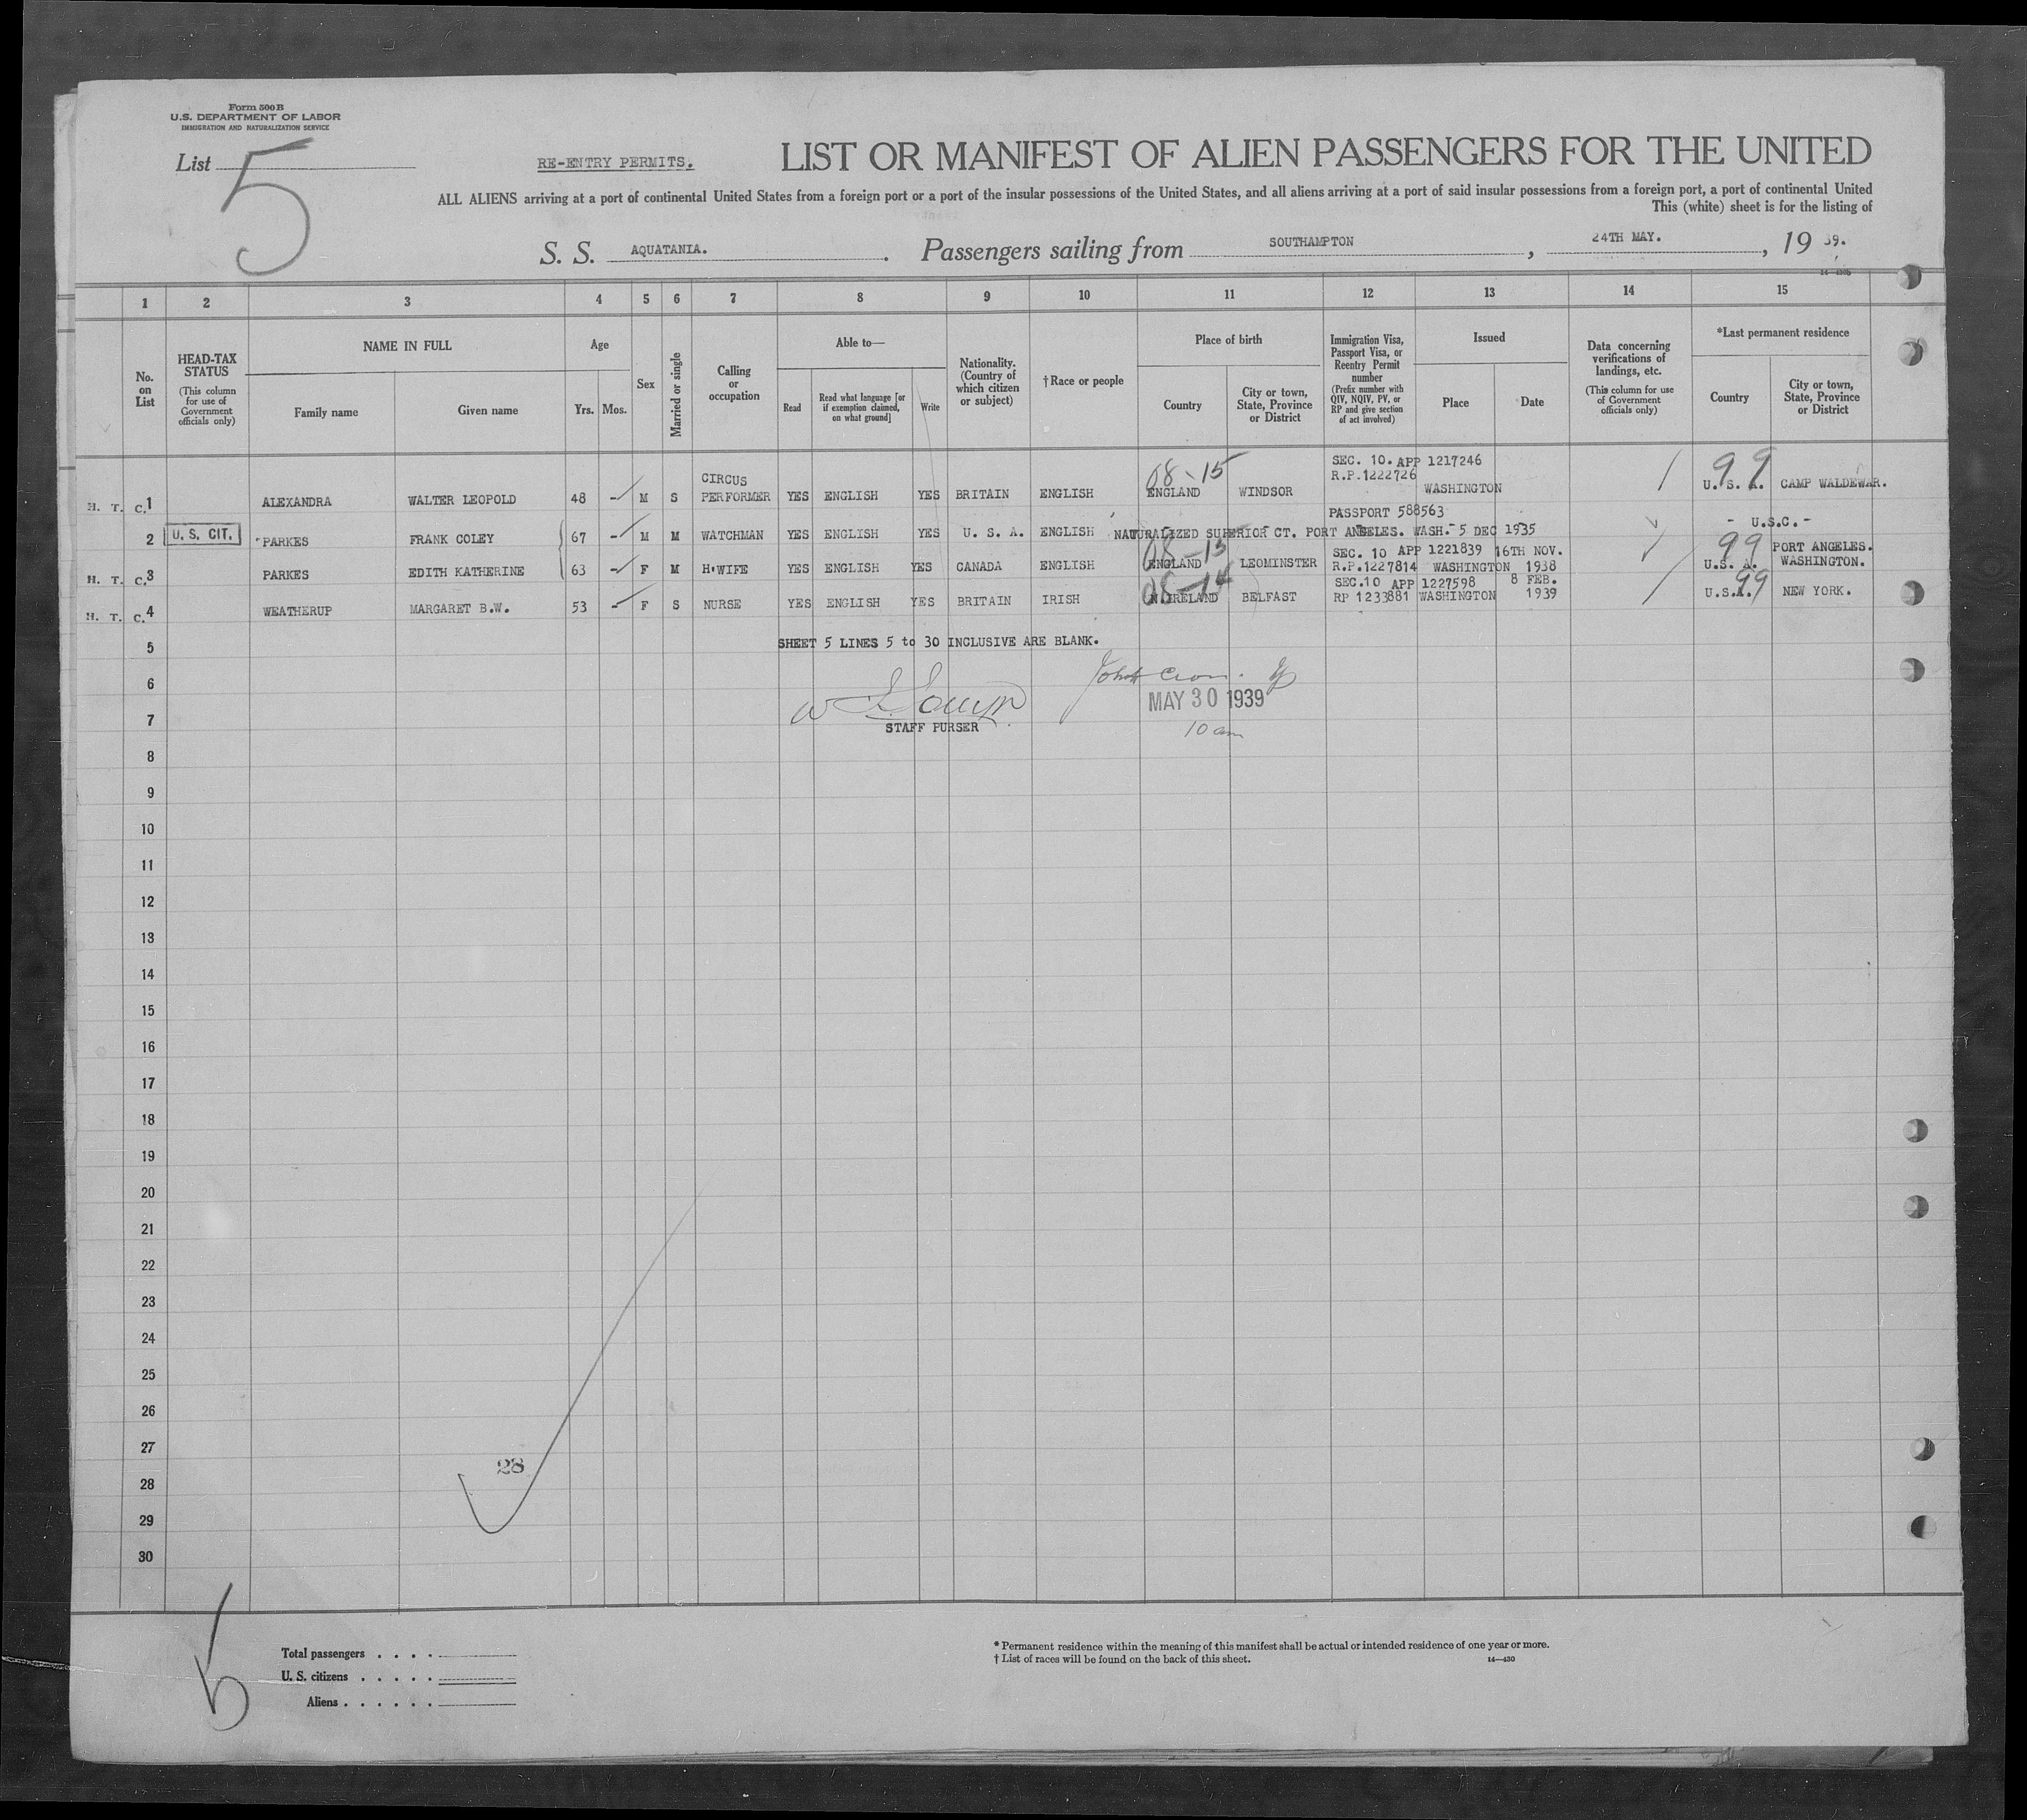 Form 500 B
U.S. DEPARTMENT OF LABOR
IMMIGRATION AND NATURALIZATION SERVICE
List 5
RE-ENTRY PERMITS.
LIST OR MANIFEST OF ALIEN PASSENGERS FOR THE UNITED
ALL ALIENS arriving at a port of continental United States from a foreign port or a port of the insular possessions of the United States, and all aliens arriving at a port of said insular possessions from a foreign port, a port of continental United
This (white) sheet is for the listing of
S. S. AQUATANIA. Passengers sailing from SOUTHAMPTON, 24TH MAY., 19 39.
1 2 3 4 5 6 7 8 9 10 11 12 13 14 15
No. on List
HEAD-TAX STATUS (This column for use of Government officials only)
NAME IN FULL
Family name
Given name
Age
Yrs. Mos.
Sex
Married or single
Calling or occupation
Able to—
Read
Read what language [or if exemption claimed, on what ground]
Write
Nationality. (Country of which citizen or subject)
†Race or people
Place of birth
Country
City or town, State, Province or District
Immigration Visa, Passport Visa, or Reentry Permit number (Prefix number with QIV, NQIV, PV, or RP and give section of act involved)
Issued
Place
Date
Data concerning verifications of landings, etc. (This column for use of Government officials only)
*Last permanent residence
Country
City or town, State, Province or District
08-15 SEC. 10. APP 1217246 99
CIRCUS R.P.1222726
H. T. C. 1 ALEXANDRA WALTER LEOPOLD 48 - M S PERFORMER YES ENGLISH YES BRITAIN ENGLISH ENGLAND WINDSOR WASHINGTON U. S. A. CAMP WALDEWAR.
PASSPORT 588563
2 U. S. CIT. PARKES FRANK COLEY 67 - M M WATCHMAN YES ENGLISH YES U. S. A. ENGLISH NATURALIZED SUPERIOR CT. PORT ANGELES. WASH. 5 DEC 1935 - U.S.C. -
08-15 SEC. 10 APP 1221839 16TH NOV. 99 PORT ANGELES.
H. T. C. 3 PARKES EDITH KATHERINE 63 - F M H·WIFE YES ENGLISH YES CANADA ENGLISH ENGLAND LEOMINSTER R.P.1227814 WASHINGTON 1938 U.S. A. WASHINGTON.
08-14 SEC.10 APP 1227598 8 FEB. 99
H. T. C. 4 WEATHERUP MARGARET B.W. 53 - F S NURSE YES ENGLISH YES BRITAIN IRISH N.IRELAND BELFAST RP 1233881 WASHINGTON 1939 U.S.A. NEW YORK.
5
SHEET 5 LINES 5 to 30 INCLUSIVE ARE BLANK.
6
MAY 30 1939
7
STAFF PURSER
10 am
8
9
10
11
12
13
14
15
16
17
18
19
20
21
22
23
24
25
26
27
28
28
29
30
Total passengers
U. S. citizens
Aliens
* Permanent residence within the meaning of this manifest shall be actual or intended residence of one year or more.
† List of races will be found on the back of this sheet.
14—430